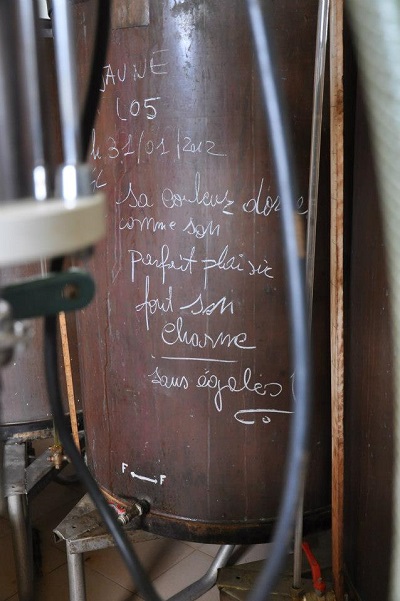 JAUNE
L05
31/01/2012
sa couleur
comme son
parfait plaisir
font son
charme
sans égales !
F F